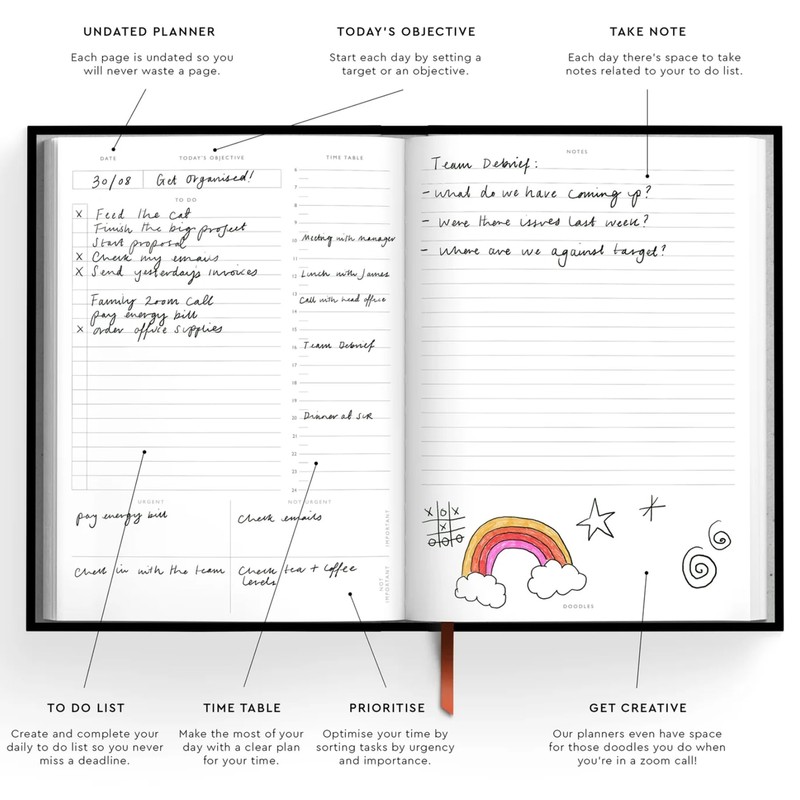 UNDATED PLANNER
Each page is undated so you
will never waste a page.
TODAY'S OBJECTIVE
Start each day by setting a
target or an objective.
TAKE NOTE
Each day there's space to take
notes related to your to do list.
DATE
TODAY'S OBJECTIVE
30/08
Get organised!
TO DO
X Feed the cat
Finish the big project
Start proposal
X Check my emails
X Send yesterdays invoices
Family zoom call
pay energy bill
X order office supplies
TIME TABLE
6
7
8
9
10 Meeting with manager
11
12 Lunch with James
13 Call with head office
14
15
16 Team Debrief
17
18
19
20 Dinner at
21
22
23
24
URGENT
NOT URGENT
pay energy bill
Check emails
IMPORTANT
Check in with the team
Check tea + coffee
levels
NOT
IMPORTANT
NOTES
Team Debrief:
- what do we have coming up?
- were there issues last week?
- where are we against target?
X O X
X
O O O
DOODLES
TO DO LIST
Create and complete your
daily to do list so you never
miss a deadline.
TIME TABLE
Make the most of your
day with a clear plan
for your time.
PRIORITISE
Optimise your time by
sorting tasks by urgency
and importance.
GET CREATIVE
Our planners even have space
for those doodles you do when
you're in a zoom call!